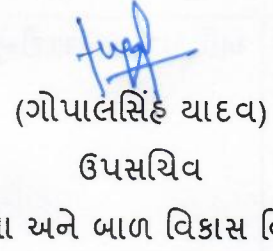 (ગોપાલસિંહ યાદવ)
ઉપસચિવ
અને બાળ વિકાસ